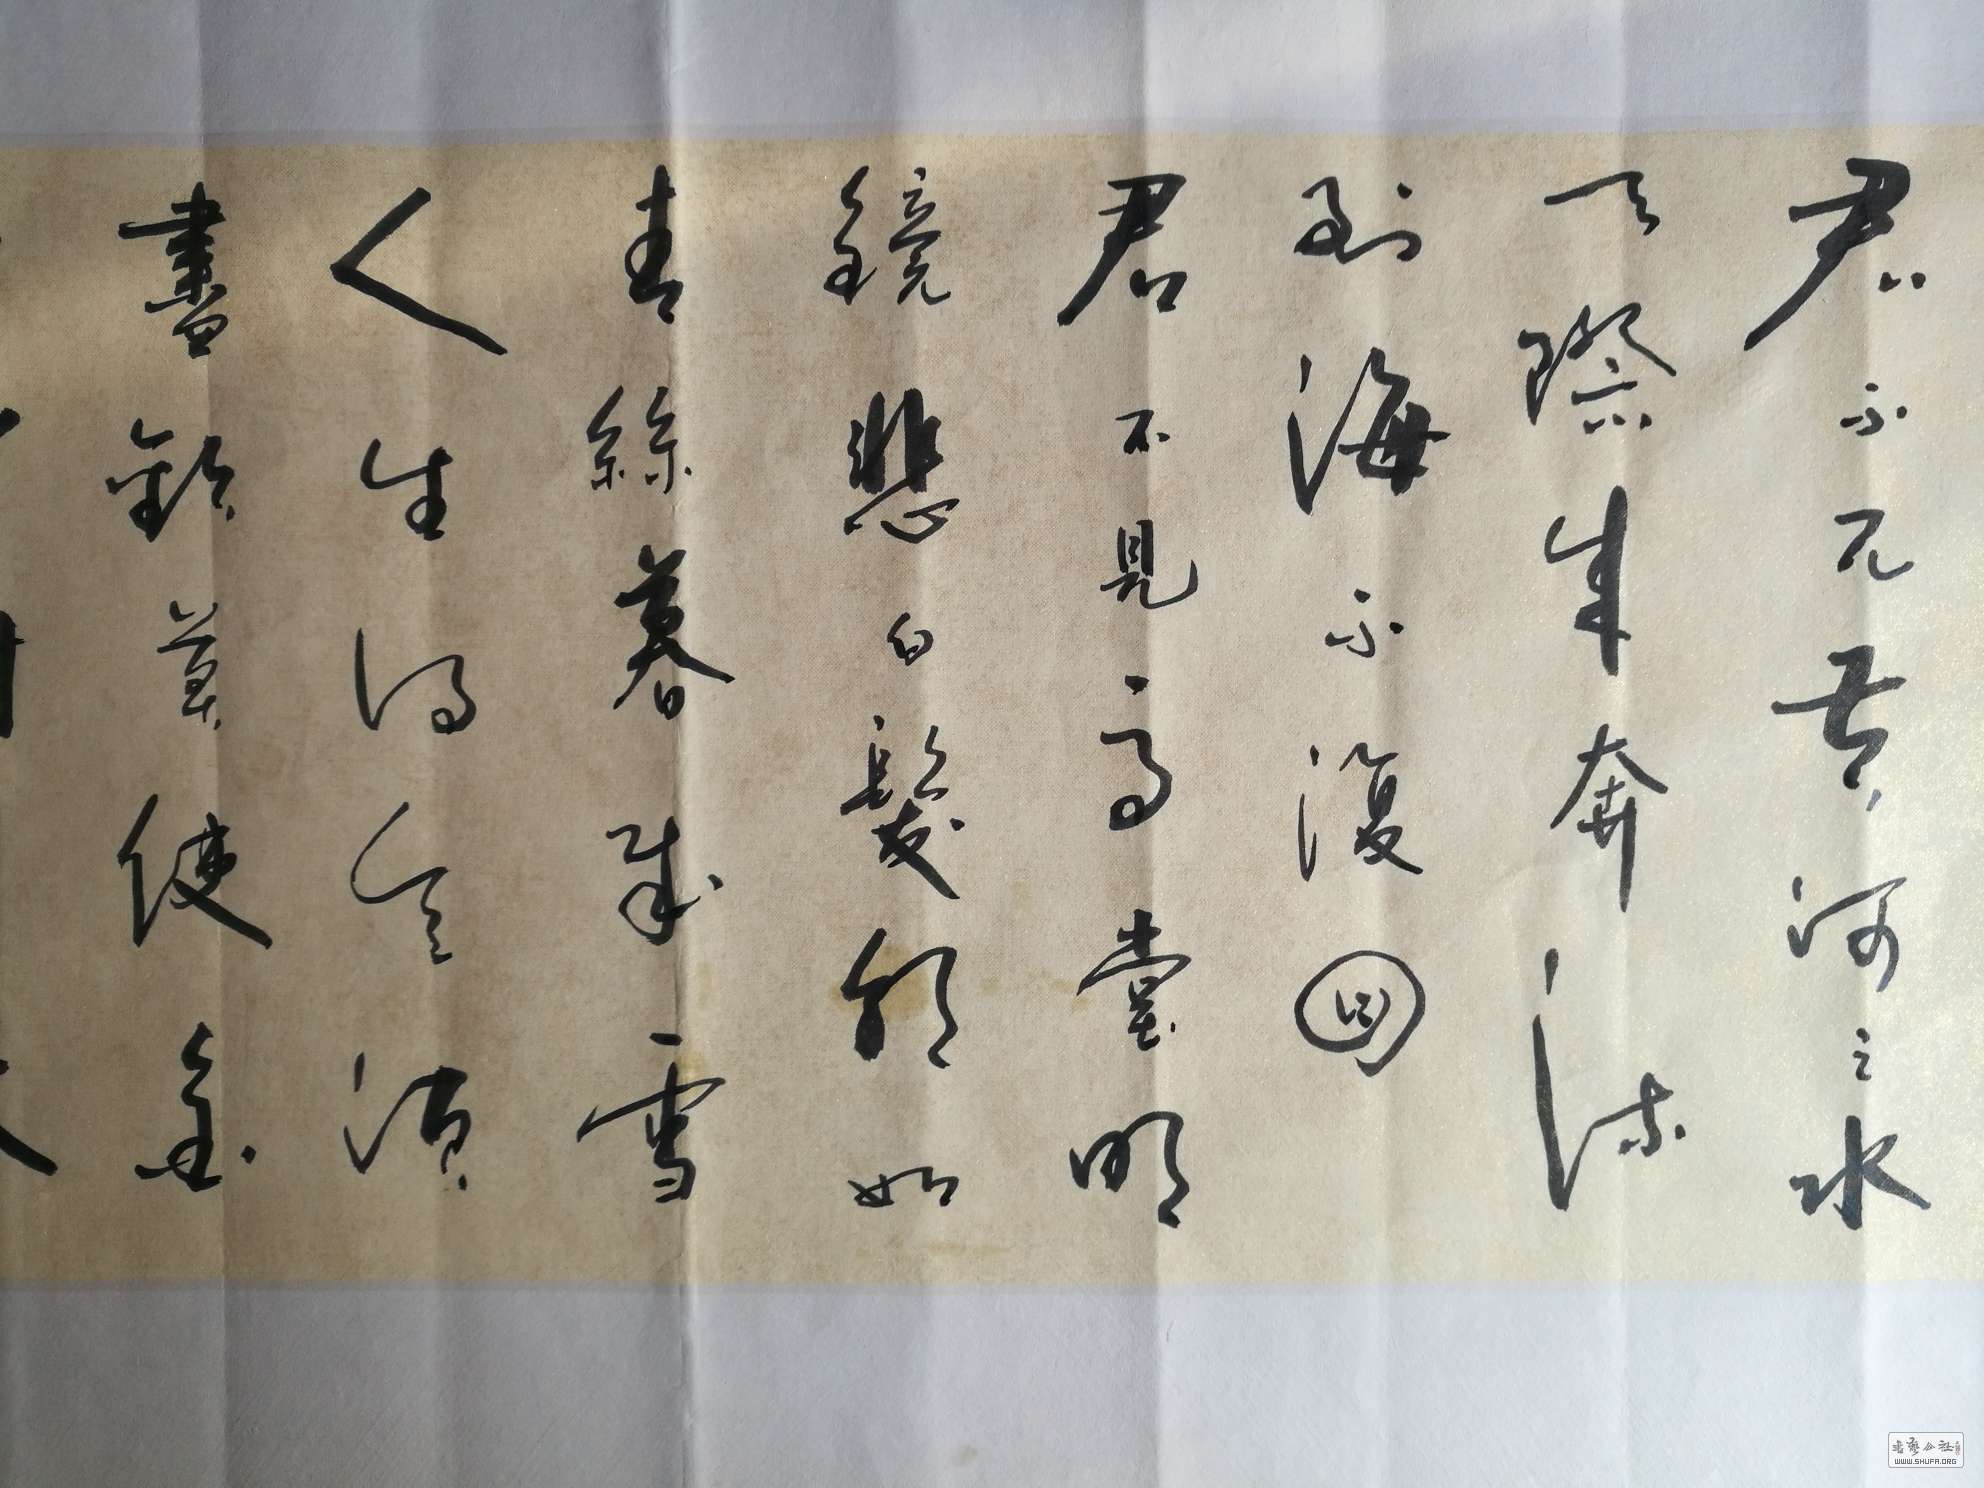 君不見黃河之水
天際来奔流
到海不復回
君不見高堂明
鏡悲白髮朝如
青絲暮成雪
人生得意須
盡歡莫使金
書藝公社
WWW.SHUFA.ORG